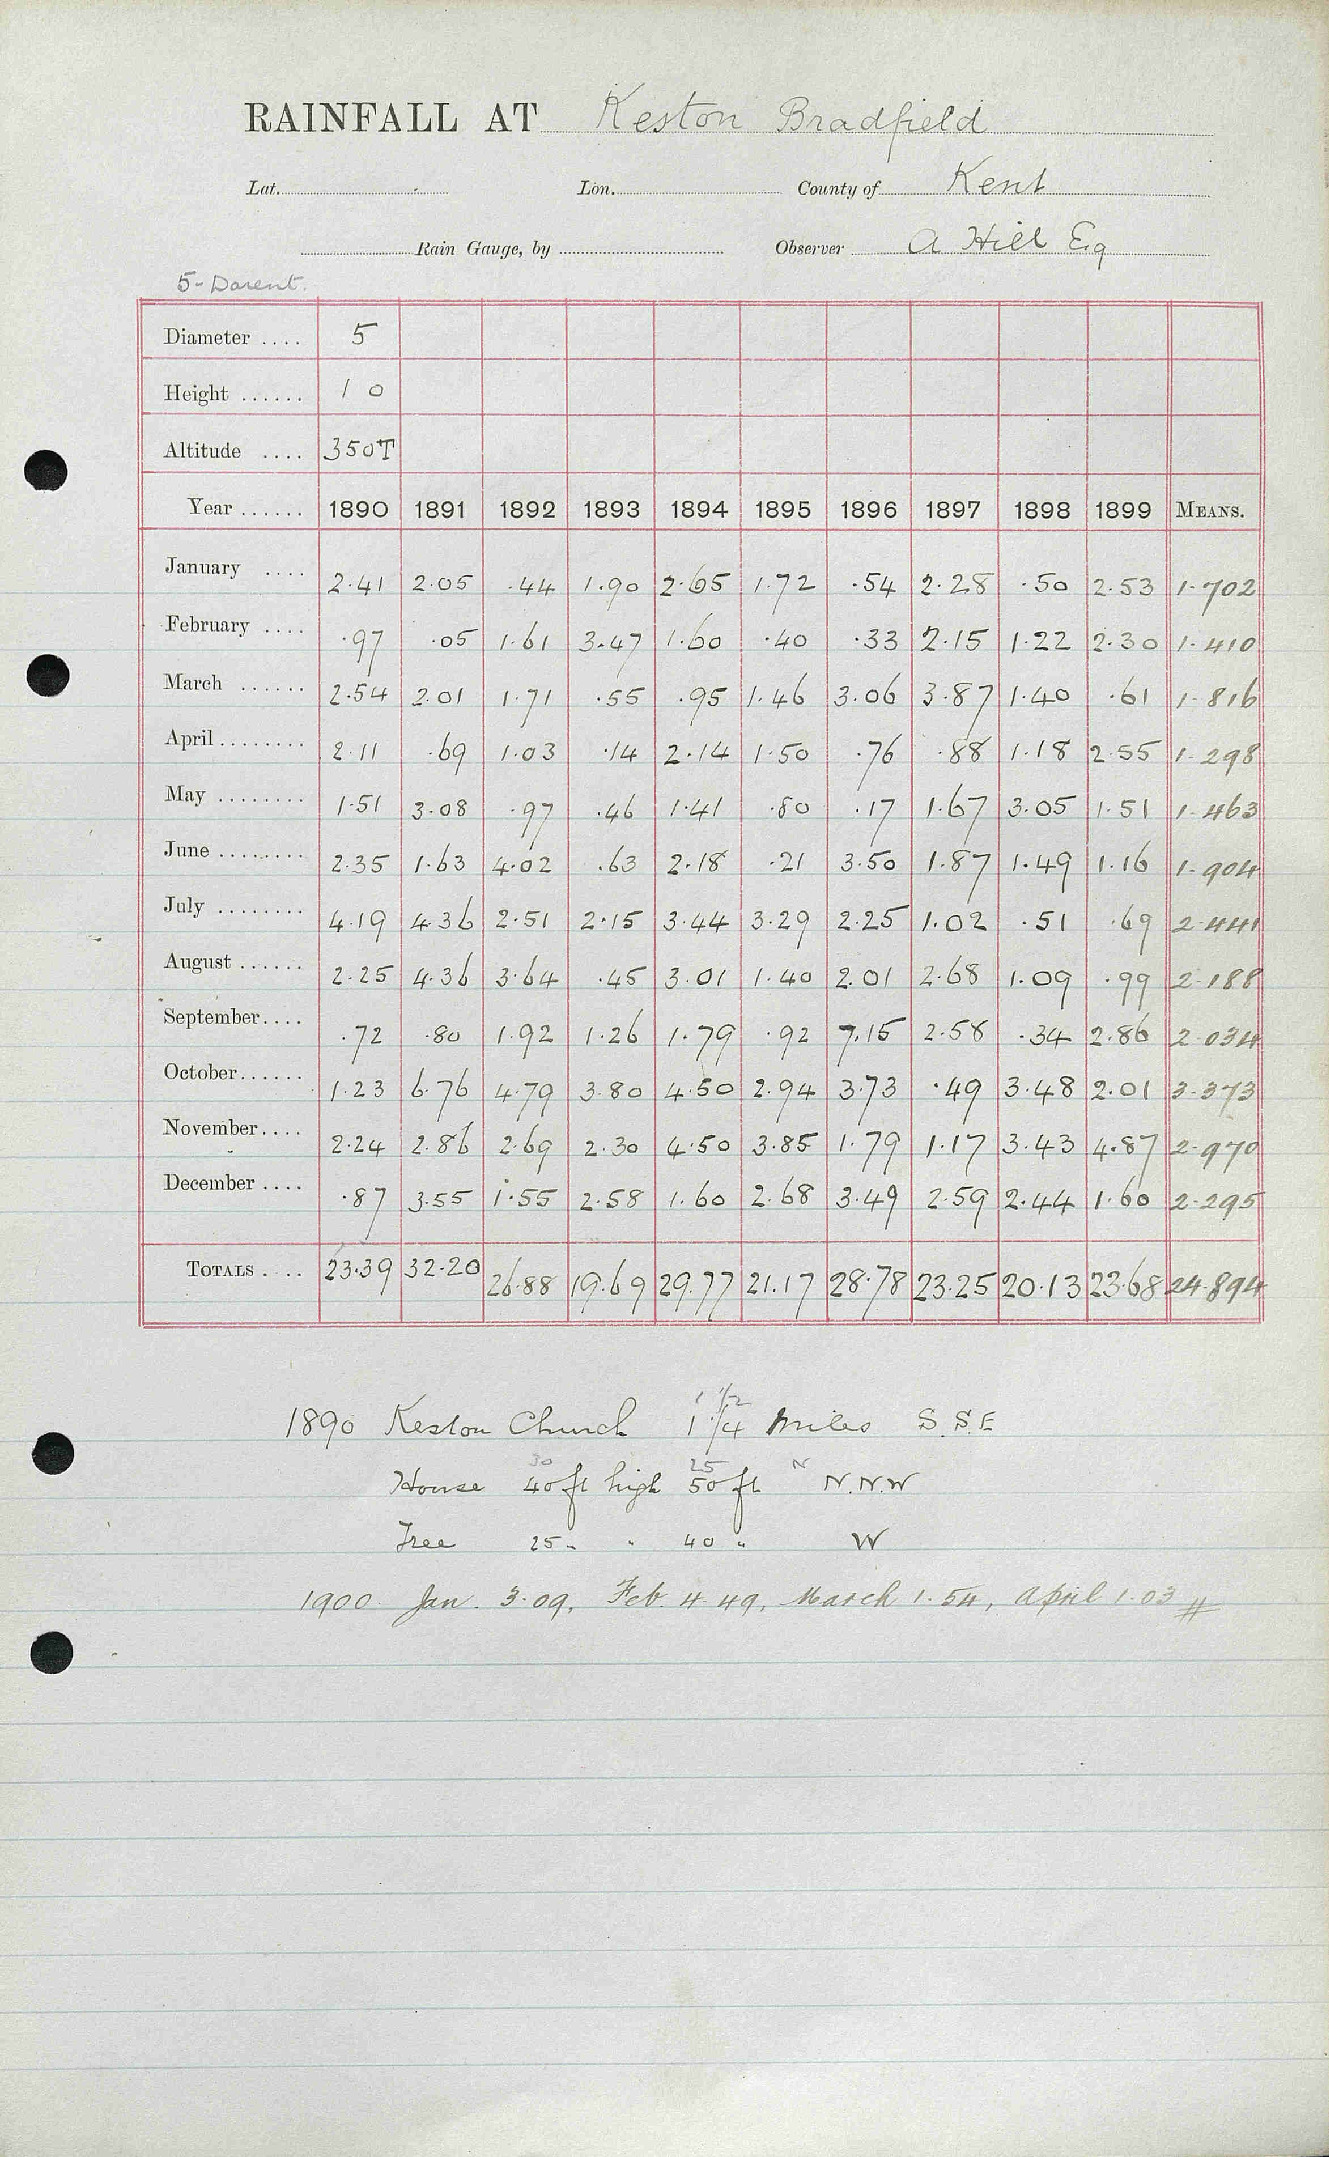 RAINFALL AT Keston Bradfield
Lat. Lon. County of Kent
Rain Gauge, by Observer A Hill Esq
5-Darent.
Diameter .... 5
Height ...... 1 0
Altitude .... 350T
Year ...... 1890 1891 1892 1893 1894 1895 1896 1897 1898 1899 MEANS.
January .... 2.41 2.05 .44 1.90 2.65 1.72 .54 2.28 .50 2.53 1.702
February .... .97 .05 1.61 3.47 1.60 .40 .33 2.15 1.22 2.30 1.410
March ...... 2.54 2.01 1.71 .55 .95 1.46 3.06 3.87 1.40 .61 1.816
April ........ 2.11 .69 1.03 .14 2.14 1.50 .76 .88 1.18 2.55 1.298
May ........ 1.51 3.08 .97 .46 1.41 .80 .17 1.67 3.05 1.51 1.463
June ........ 2.35 1.63 4.02 .63 2.18 .21 3.50 1.87 1.49 1.16 1.904
July ........ 4.19 4.36 2.51 2.15 3.44 3.29 2.25 1.02 .51 .69 2.441
August ...... 2.25 4.36 3.64 .45 3.01 1.40 2.01 2.68 1.09 .99 2.188
September .... .72 .80 1.92 1.26 1.79 .92 7.15 2.58 .34 2.86 2.034
October ...... 1.23 6.76 4.79 3.80 4.50 2.94 3.73 .49 3.48 2.01 3.373
November .... 2.24 2.86 2.69 2.30 4.50 3.85 1.79 1.17 3.43 4.87 2.970
December .... .87 3.55 1.55 2.58 1.60 2.68 3.49 2.59 2.44 1.60 2.295
TOTALS .... 23.39 32.20 26.88 19.69 29.77 21.17 28.78 23.25 20.13 23.68 24.894
1 1/2
1890 Keston Church 1 1/4 miles S.S.E
30 25 N
House 40 ft high 50 ft N.N.W
Tree 25 " " 40 " W
1900 Jan. 3.09, Feb. 4.49, March 1.54, April 1.03 #